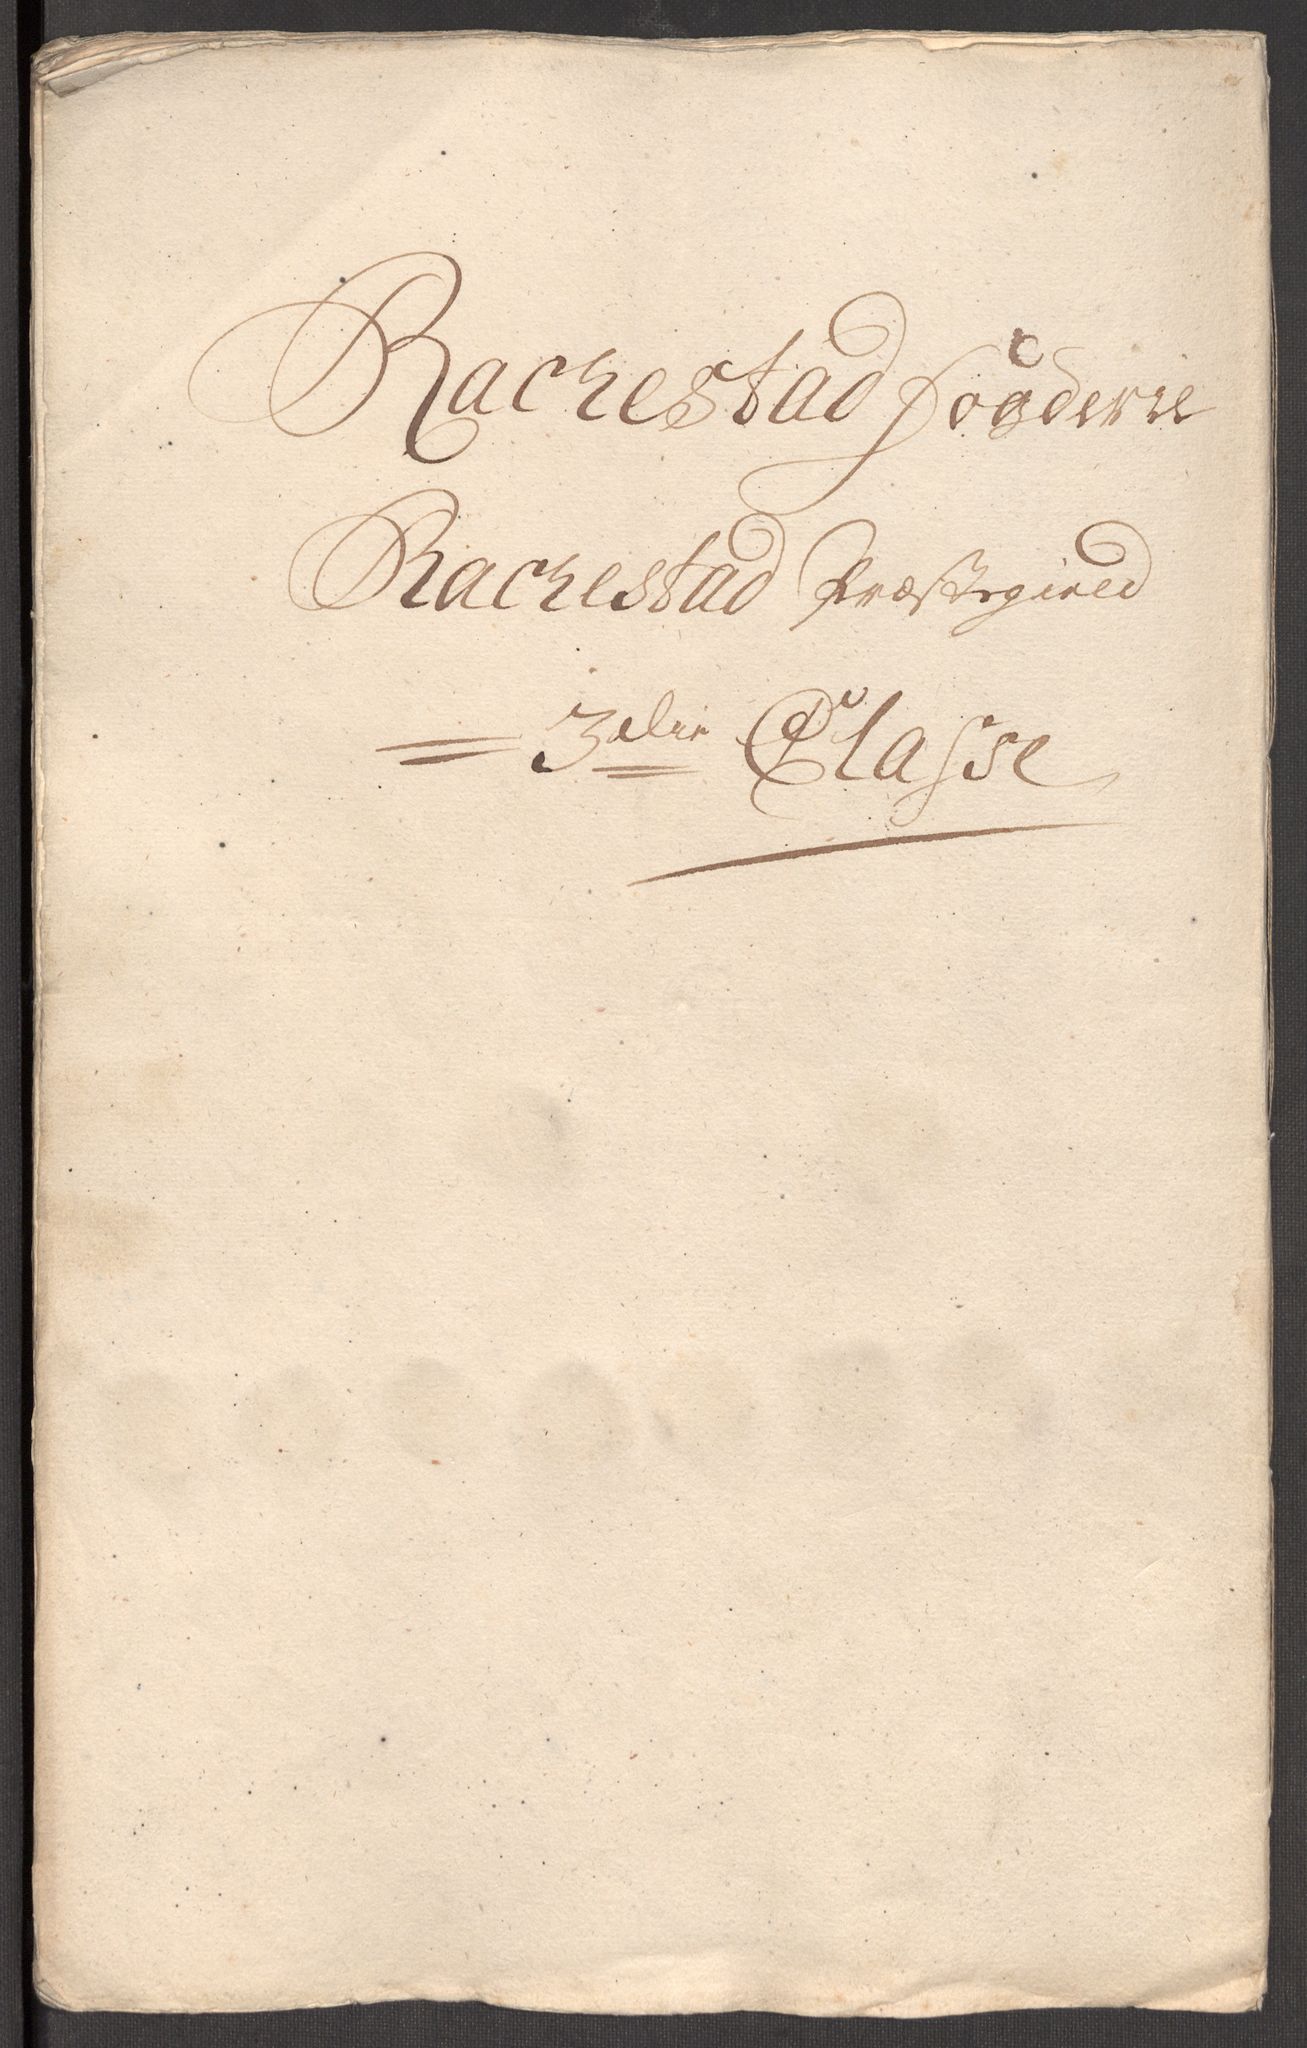 Rachestad Fogderie
Rachestad Præstegield
3die Classe